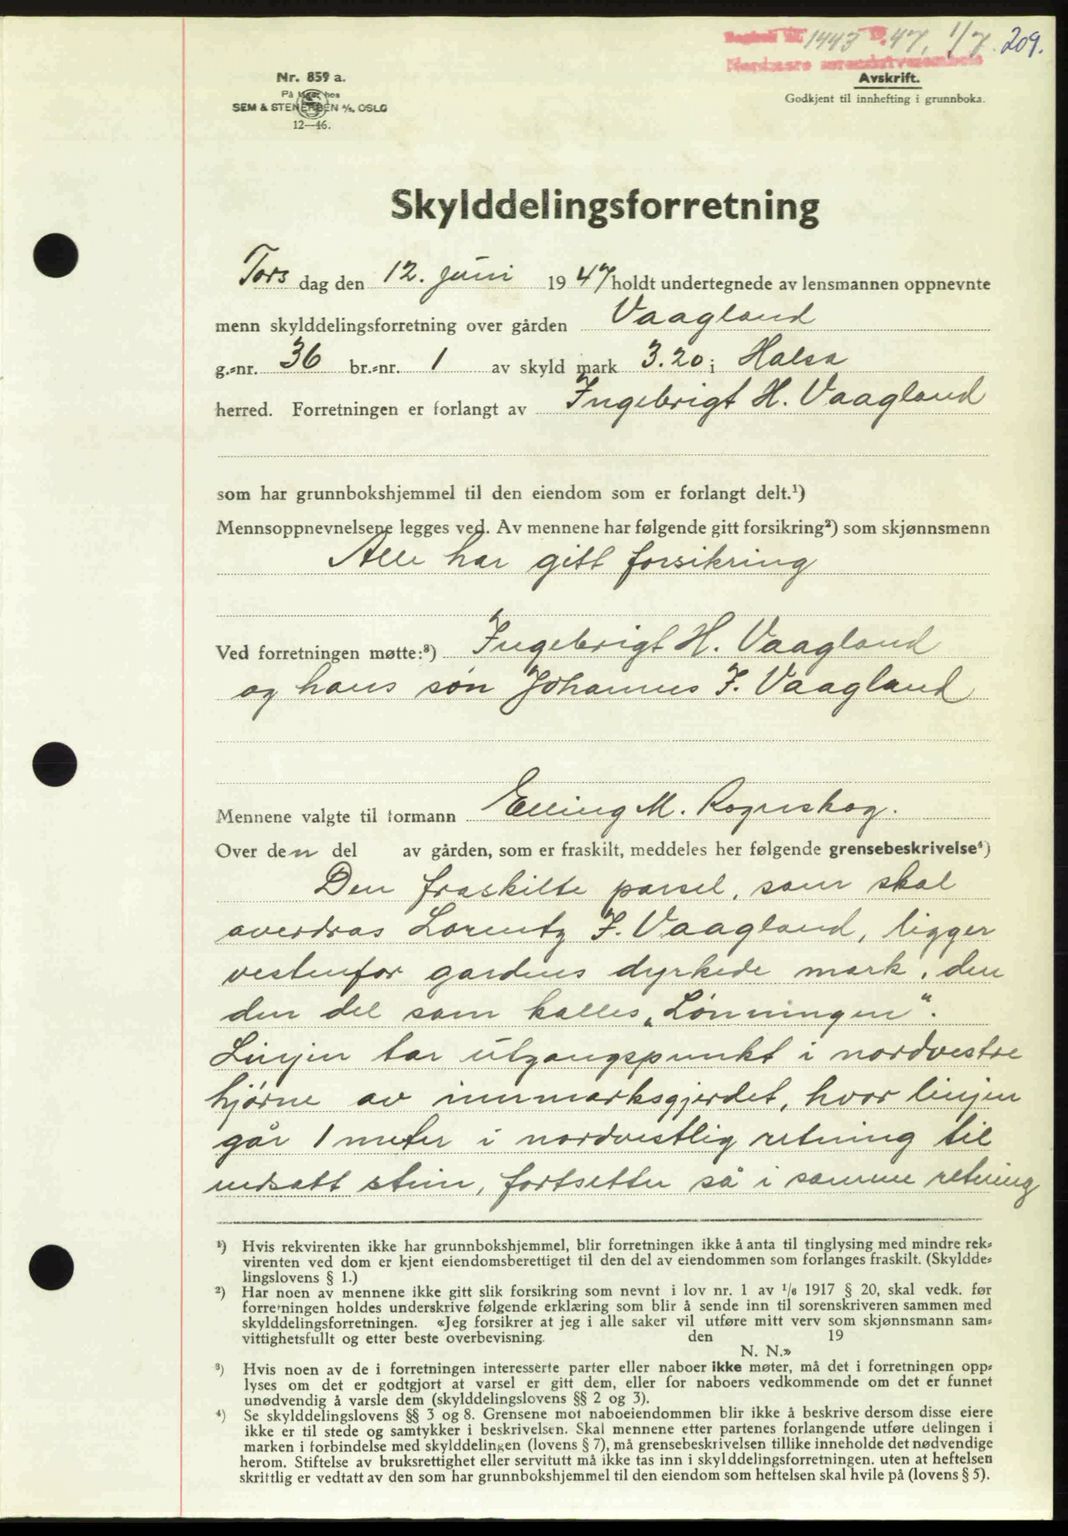 Dagbok nr. 1443 19 47, 1/7 209.
Nordmøre sorenskriverembete
Nr. 859 a.
Avskrift.
På lager hos
Godkjent til innhefting i grunnboka.
SEM & STENERSEN A/S, OSLO
12—46.
Skylddelingsforretning
Tors dag den 12. juni 1947 holdt undertegnede av lensmannen oppnevnte
menn skylddelingsforretning over gården Vaagland
g.-nr. 36 br.-nr. 1 av skyld mark 3.20 i Halsa
herred. Forretningen er forlangt av Ingebrigt H. Vaagland
som har grunnbokshjemmel til den eiendom som er forlangt delt.¹)
Mennsoppnevnelsene legges ved. Av mennene har følgende gitt forsikring²) som skjønnsmenn
Alle har gitt forsikring
Ved forretningen møtte:³) Ingebrigt H. Vaagland
og hans søn Johannes I. Vaagland
Mennene valgte til formann Elling M. Rognskog.
Over den del av gården, som er fraskilt, meddeles her følgende grensebeskrivelse⁴)
Den fraskilte parsel, som skal
averdras Lorentz I. Vaagland, ligger
vestenfor gardens dyrkede mark, den
den del som kalles „Lønningen".
Linjen tar utgangspunkt i nordvestre
hjørne av innmarksgjerdet, hvor linjen
går 1 meter i nordvestlig retning til
nedsatt stein, fortsetter så i samme retning
¹) Hvis rekvirenten ikke har grunnbokshjemmel, blir forretningen ikke å anta til tinglysing med mindre rek-
virenten ved dom er kjent eiendomsberettiget til den del av eiendommen som forlanges fraskilt. (Skyldde-
lingslovens § 1.)
²) Har noen av mennene ikke gitt slik forsikring som nevnt i lov nr. 1 av 1/6 1917 § 20, skal vedk. før
forretningen holdes underskrive følgende erklæring som blir å sende inn til sorenskriveren sammen med
skylddelingsforretningen. «Jeg forsikrer at jeg i alle saker vil utføre mitt verv som skjønnsmann sam-
vittighetsfullt og etter beste overbevisning. den 19
N. N.»
³) Hvis noen av de i forretningen interesserte parter eller naboer ikke møter, må det i forretningen opp-
lyses om det er godtgjort at varsel er gitt dem, eller for naboers vedkommende om det er funnet
unødvendig å varsle dem (skylddelingslovens §§ 2 og 3).
⁴) Se skylddelingslovens §§ 3 og 8. Grensene mot naboeiendommen blir ikke å beskrive dersom disse eiere
ikke er til stede og samtykker i beskrivelsen. Skal mennene etter partenes forlangende utføre delingen i
marken i forbindelse med skylddelingen (lovens § 7), må grensebeskrivelsen tillike inneholde det nødvendige
herom. Stiftelse av bruksrettighet eller servitutt må ikke tas inn i skylddelingsforretningen, uten at heftelsen
skrittlig er vedtatt av den som har grunnbokshjemmel til den eiendom som heftelsen skal hvile på (lovens § 5).